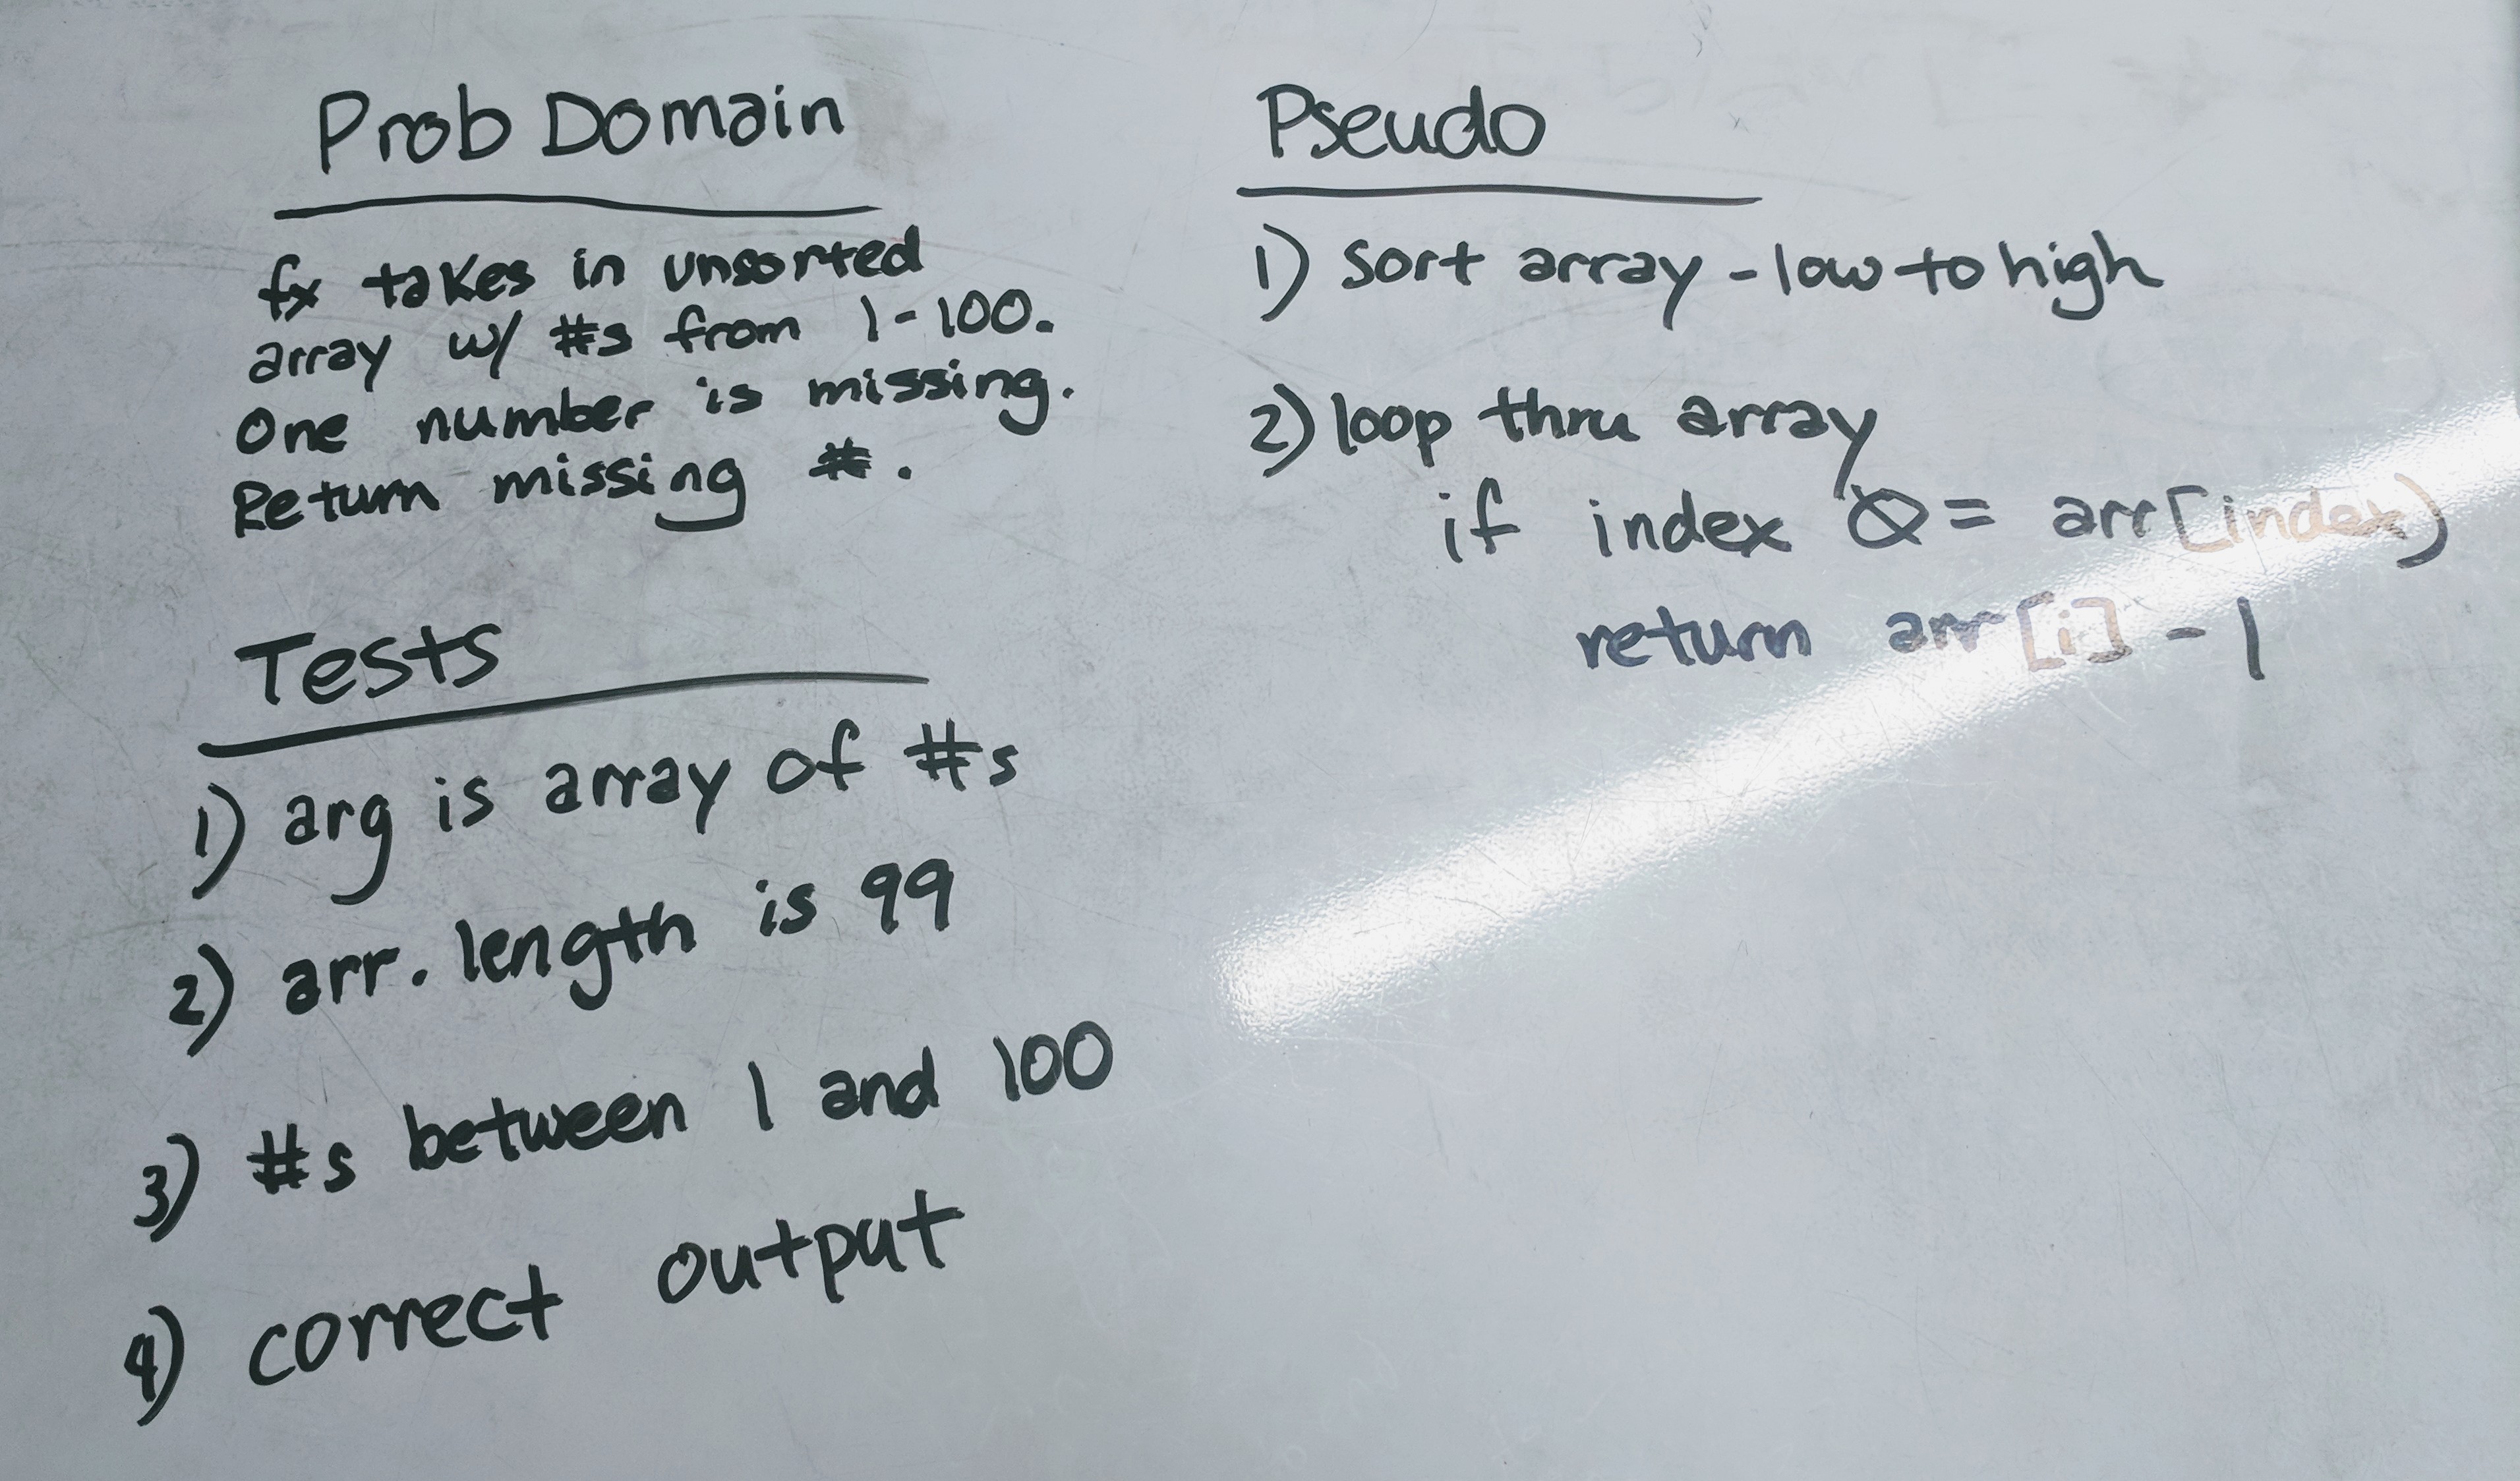 Prob Domain
fx takes in unsorted
array w/ #s from 1-100.
One number is missing.
Return missing #.
Tests
1) arg is array of #s
2) arr.length is 99
3) #s between 1 and 100
4) correct output
Pseudo
1) sort array - low to high
2) loop thru array
if index = arr[index)
return arr[i] - 1